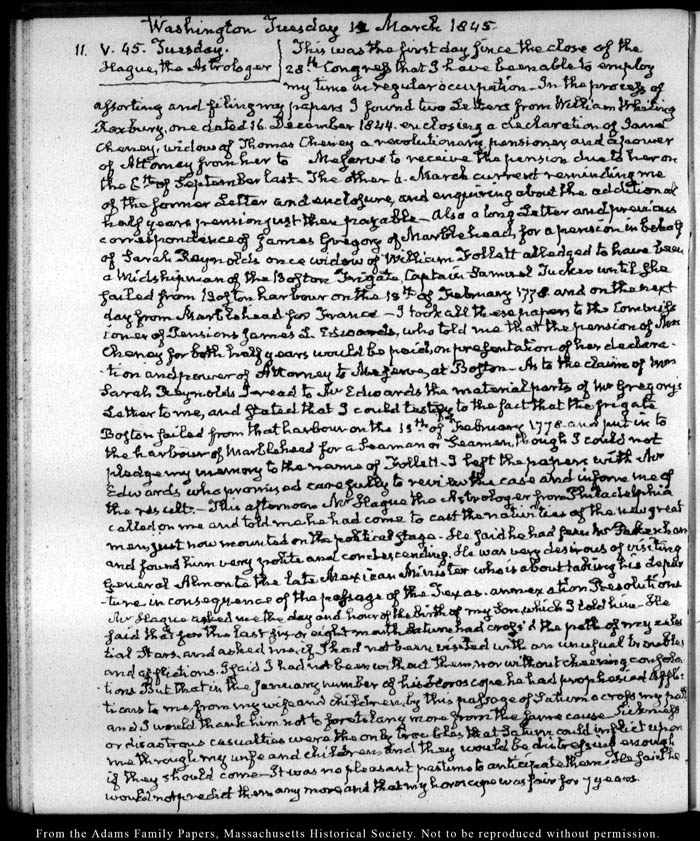 Washington Tuesday 11 March 1845.
11. V. 45. Tuesday.
Hague, the Astrologer
This was the first day since the close of the
28th Congress that I have been able to employ
my time in regular occupation. In the process of
assorting and filing my papers I found two Letters from William Whiting
Roxbury, one dated 16. December 1844. enclosing a declaration of
Cheney, widow of Thomas Cheney a revolutionary pensioner and a power
of Attorney from her to Meserve to receive the pension due to her on
the 6th of September last. The other 6. March current reminding me
of the former Letter and enclosure, and enquiring about the additional
half years pension just then payable— Also a long Letter and previous
correspondence of James Gregory of Marblehead, for a pension in behalf
of Sarah Reynolds once widow of William Follett alledged to have been
a Midshipman of the Boston Frigate, Captain Samuel Tucker until she
sailed from Boston harbour on the 13th of February 1778 and on the next
day from Marblehead for France— I took all these papers to the Commiss
ioner of Pensions James L. Edwards, who told me that the pension of Mrs
Cheney for both half years would be paid, on presentation of her declara-
-tion and power of Attorney to Meserve, at Boston— As to the claim of Mrs
Sarah Reynolds I read to Mr Edwards the material parts of Mr Gregory's
Letter to me, and stated that I could testify to the fact that the frigate
Boston sailed from that harbour on the 13th of February 1778 and put in to
the harbour of Marblehead for a Seaman or Seamen, though I could not
pledge my memory to the name of Follett— I left the papers with Mr
Edwards who promised carefully to review the case and inform me of
the result.— This afternoon Mr Hague the Astrologer from Philadelphia
called on me and told me he had come to cast the nativities of the new great
men, just now mounted on the political stage— He said he had seen Mr Pakenham
and found him very polite and condescending. He was very desirous of visiting
General Almonte the late Mexican Minister who is about taking his depar
-ture in consequence of the passage of the Texas annexation Resolutions
Mr Hague asked me the day and hour of the birth of my Son, which I told him— He
said that for the last six or eight month Saturn had cross'd the path of my celes
tial Stars and asked me if I had not been visited with an unusual troubles
and afflictions. I said I had not been without them nor without cheering consola
-tions But that in the January number of his Horoscope he had prophesied afflic
tions to me from my wife and children, by this passage of Saturn across my path
and I would thank him not to foretel any more from the same cause— Sickness
or disastrous casualties were the only troubles that Saturn could inflict upon
me through my wife and children and they would be distressful enough
if they should come— It was no pleasant pastime to anticipate them— He said he
would not predict them any more and that my horoscope was fair for 7 years.
From the Adams Family Papers, Massachusetts Historical Society. Not to be reproduced without permission.